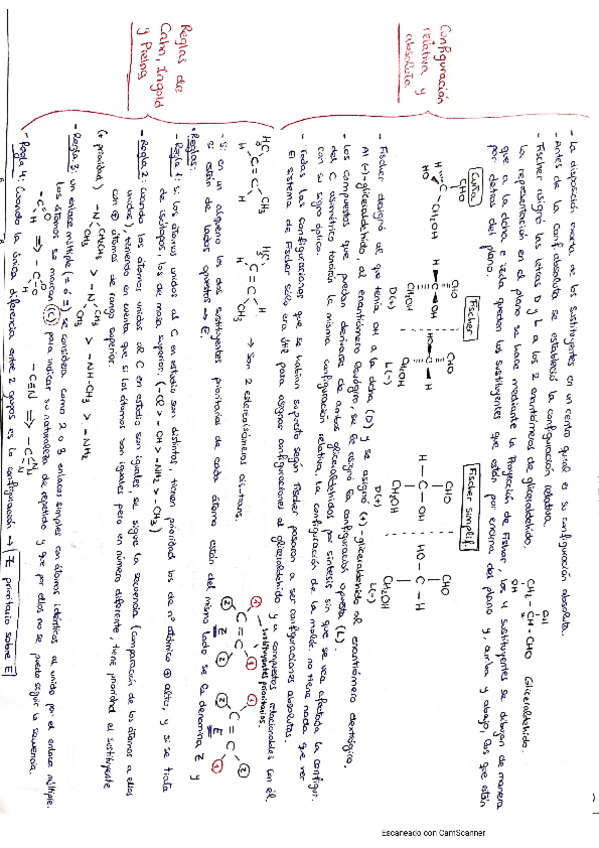 Configuración
relativa y
absoluta
- La disposición exacta de los sustituyentes en un centro quiral es su configuración absoluta.
- Antes de la conf. absoluta se estableció la configuración relativa.
- Fischer asignó las letras D y L a los 2 enantiómeros de gliceraldehído,
la representación en el plano se hace mediante la Proyección de Fisher, los 4 sustituyentes se dibujan de manera
que a la dcha. e izda quedan los sustituyentes que están por encima del plano y, arriba y abajo, los que están
por detrás del plano.
OH
CH2 - CH - CHO Gliceraldehído.
OH
Cuña
Fischer
Fischer simplif.
CHO
H
C
HO
CH2OH
CHO
H C OH
CH2OH
D(+)
CHO
HO C H
CH2OH
L(-)
CHO
H - C - OH
CH2OH
D(+)
CHO
HO - C - H
CH2OH
L(-)
- Fischer designó al que tenía OH a la dcha (D) y se asignó (+)-gliceraldehído al enantiómero dextrógiro,
Al (-)-gliceraldehído, al enantiómero levógiro, se le asignó la configuración opuesta (L).
- Los compuestos que puedan derivarse de ambos gliceraldehídos por síntesis sin que se vea afectada la configur.
del C asimétrico tendrán la misma configuración relativa, la configuración de la moléc. no tiene nada que ver
con su signo óptico.
- Todas las configuraciones que se habían supuesto según Fischer pasaron a ser configuraciones absolutas.
El sistema de Fischer sólo era útil para asignar configuraciones al gliceraldehído y a compuestos relacionables con él.
Reglas de
Cahn, Ingold
y Prelog
H3C CH3
C = C
H H
H3C H
C = C
H CH3
→ Son 2 estereoisómeros cis-trans.
sustituyentes prioritarios.
1 1
C = C
2 Z 2
2 1
C = C
1 E 2
- Si en un alqueno los dos sustituyentes prioritarios de cada átomo están del mismo lado se la denomina Z y
si están de lados opuestos → E.
• Reglas:
- Regla 1: si los átomos unidos al C en estudio son distintos, tienen prioridad los de nº atómico ⊕ alto, y si se trata
de isótopos, los de masa superior. (-Cl > -OH > -NH2 > -CH3)
- Regla 2: Cuando los átomos unidos al C en estudio son iguales, se sigue la secuencia (comparación de los átomos a ellos
unidos), teniendo en cuenta que si los átomos son iguales pero en número diferente, tiene prioridad el sustituyente
con ⊕ átomos de rango superior.
(+ prioridad) -N CH2CH3 CH3 > -N CH3 CH3 > -NH-CH3 > -NH2
- Regla 3: un enlace múltiple (= ó ≡) se considera como 2 o 3 enlaces simples con átomos idénticos al unido por el enlace múltiple.
Los átomos se marcan (C) para indicar su naturaleza de repetido y que por ellos no se puede seguir la secuencia.
- Regla 4: Cuando la única diferencia entre 2 grupos es la configuración → Z prioritario sobre E
Escaneado con CamScanner